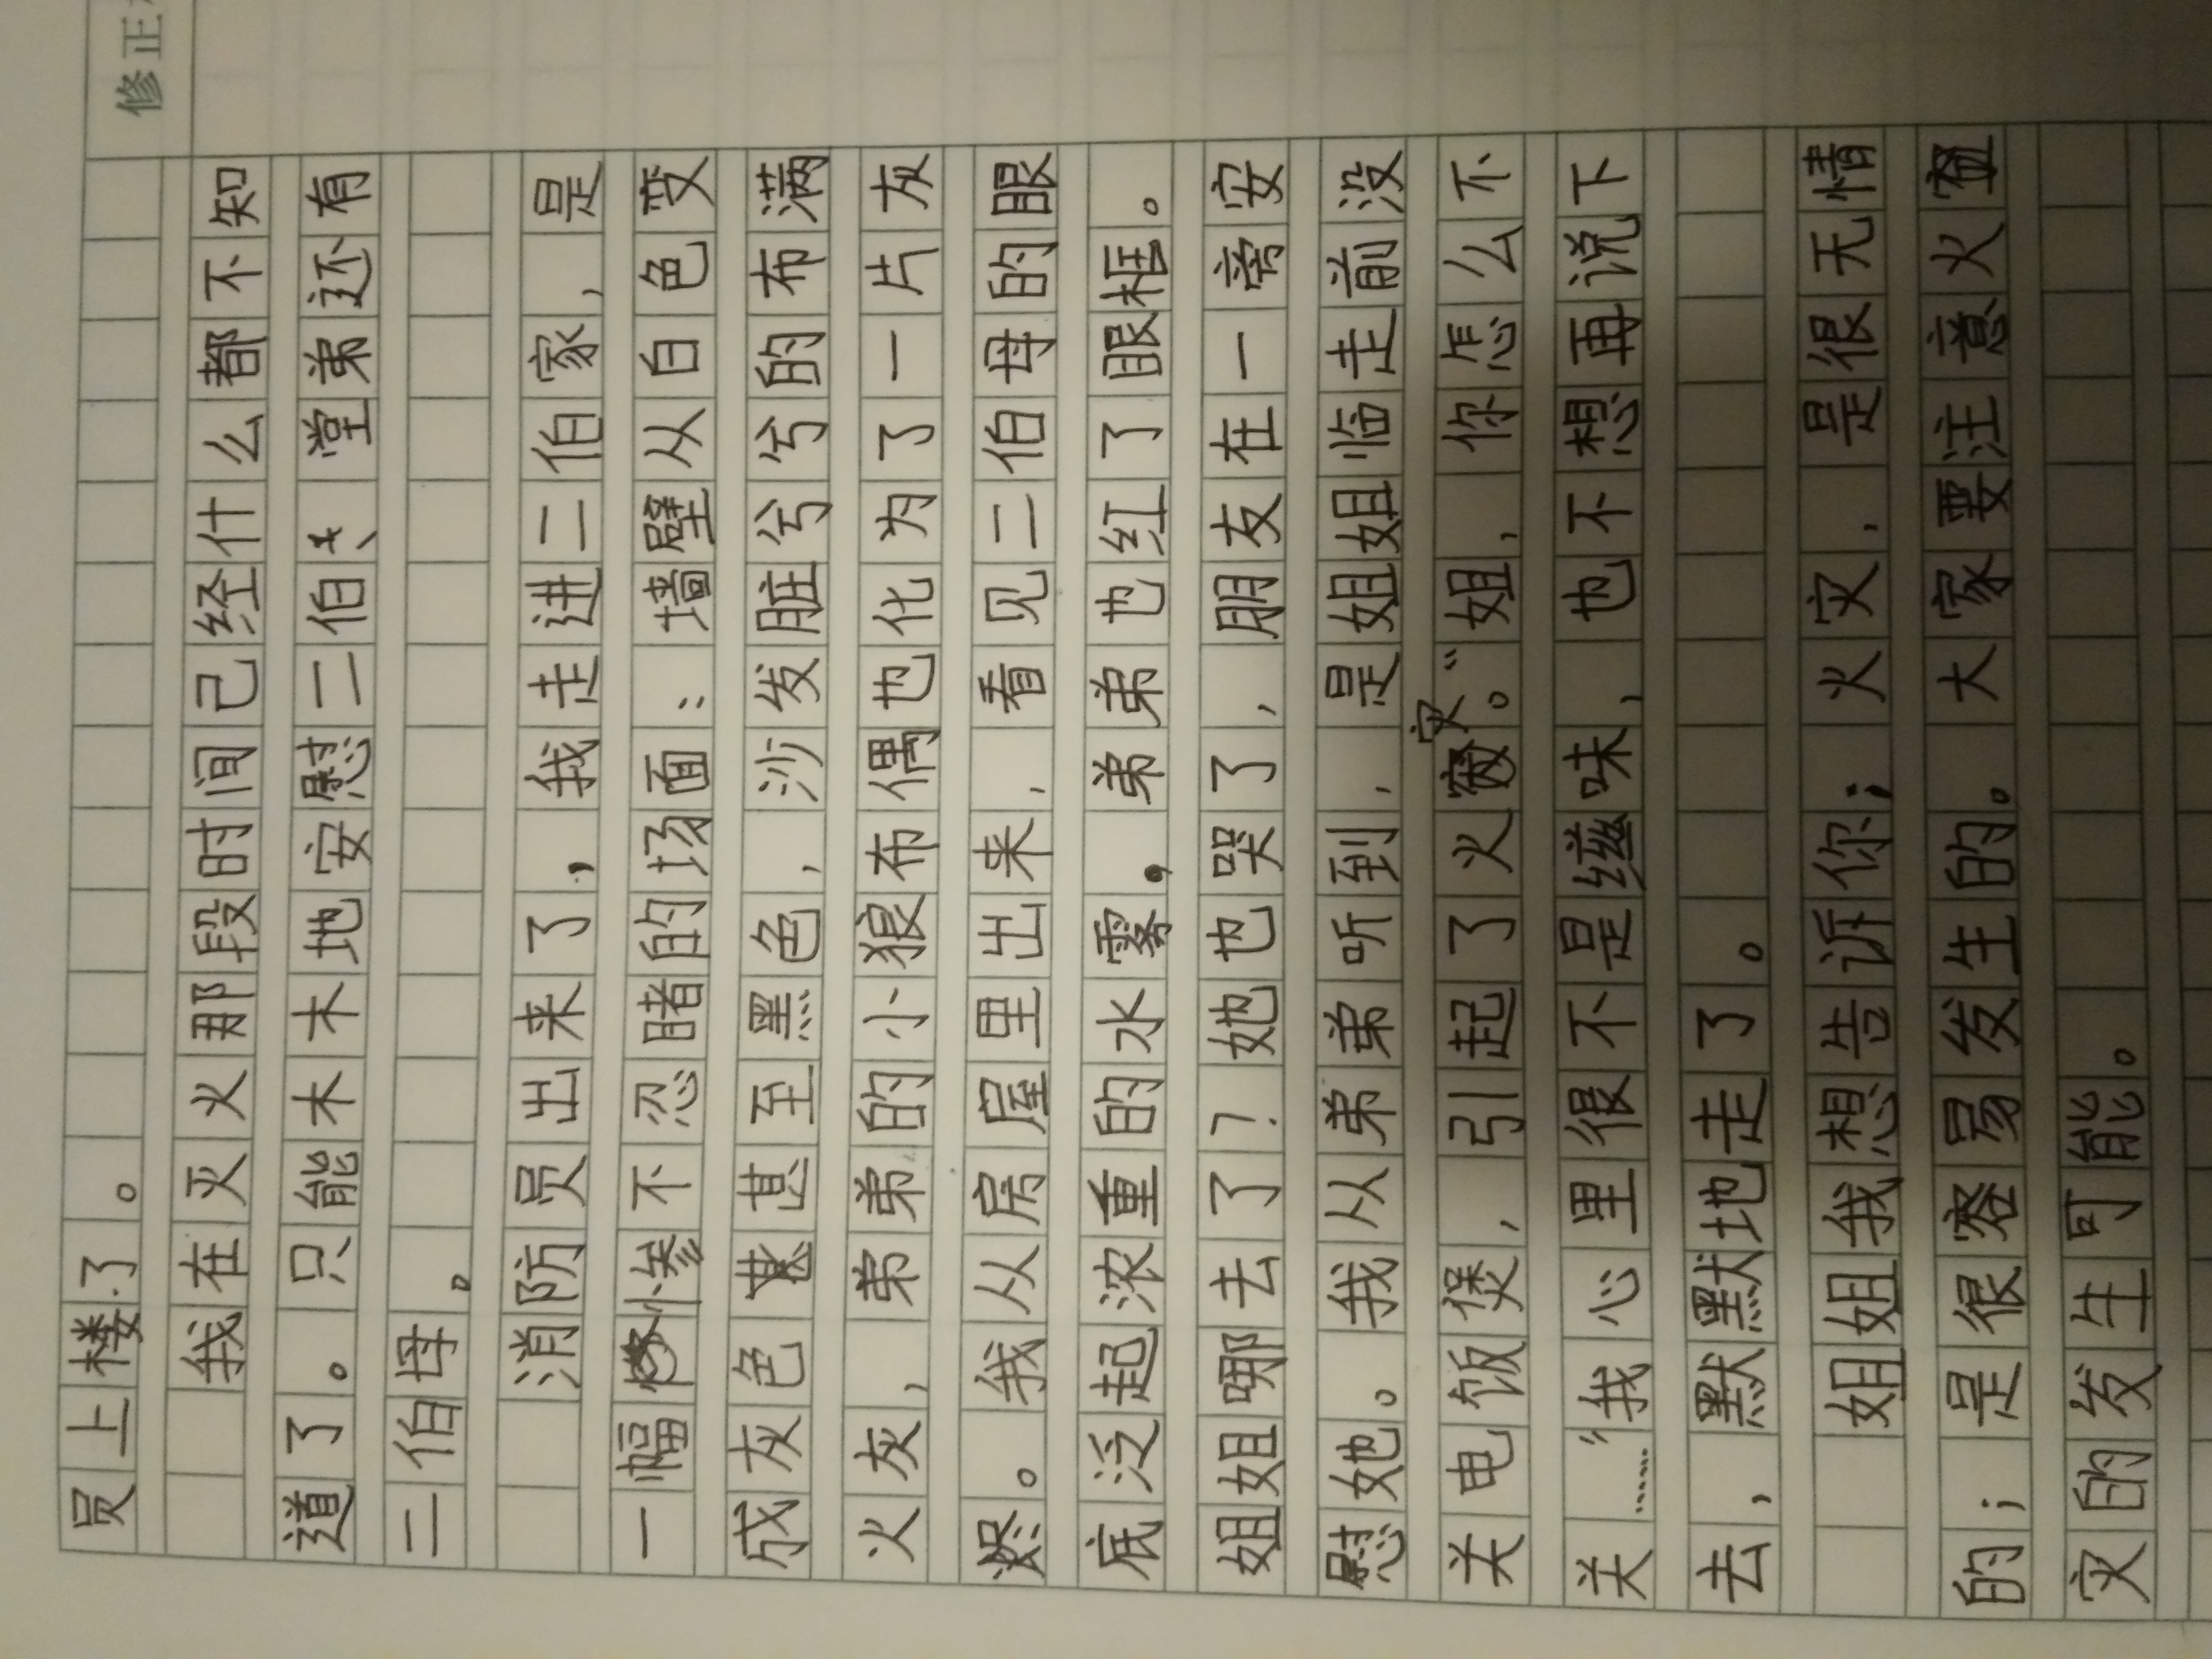 修正
员上楼了。
我在灭火那段时间己经什么都不知
道了。只能木木地安慰二伯、堂弟还有
二伯母。
消防员出来了，我走进二伯家，是
一幅惨不忍睹的场面：墙壁从白色变
成灰色甚至黑色，沙发脏兮兮的布满
火灰，弟弟的小狼布偶也化为了一片灰
烬。我从房屋里出来，看见二伯母的眼
底泛起浓重的水雾。弟弟也红了眼框。
姐姐哪去了？她也哭了，朋友在一旁安
慰她。我从弟弟听到，是姐姐临走前没
关电饭煲，引起了火灾。“姐，你怎么不
关……”我心里很不是滋味，也不想再说下
去，默默地走了。
姐姐我想告诉你；火灾，是很无情
的；是很容易发生的。大家要注意火
灾的发生可能。